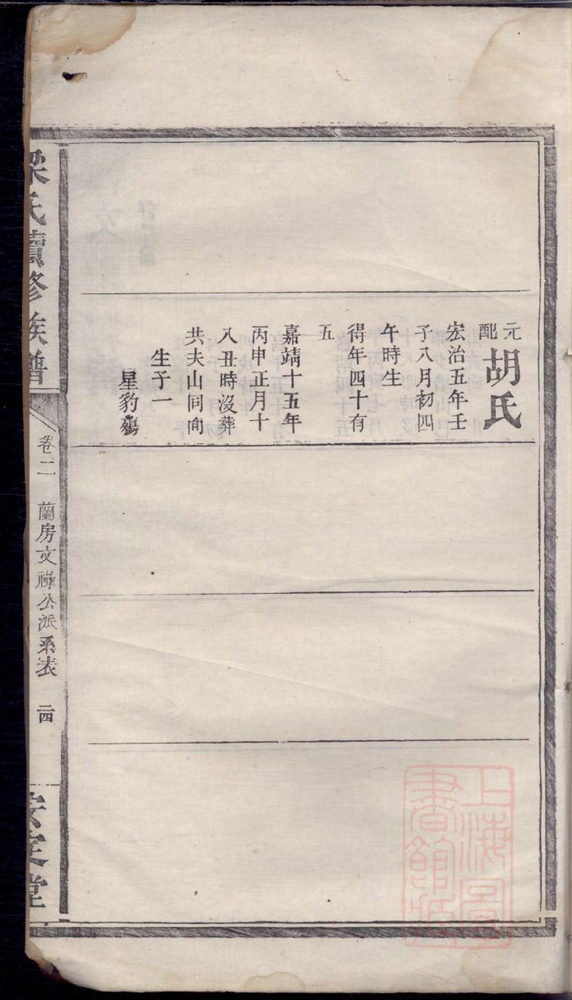 元配
胡氏
宏治五年壬
子八月初四
午時生
得年四十有
五
嘉靖十五年
丙申正月十
八丑時沒葬
共夫山同向
生子一
星豹
梁氏續修族譜
卷二
蘭房文祿公派系表
二四
安定堂
上海圖書館藏